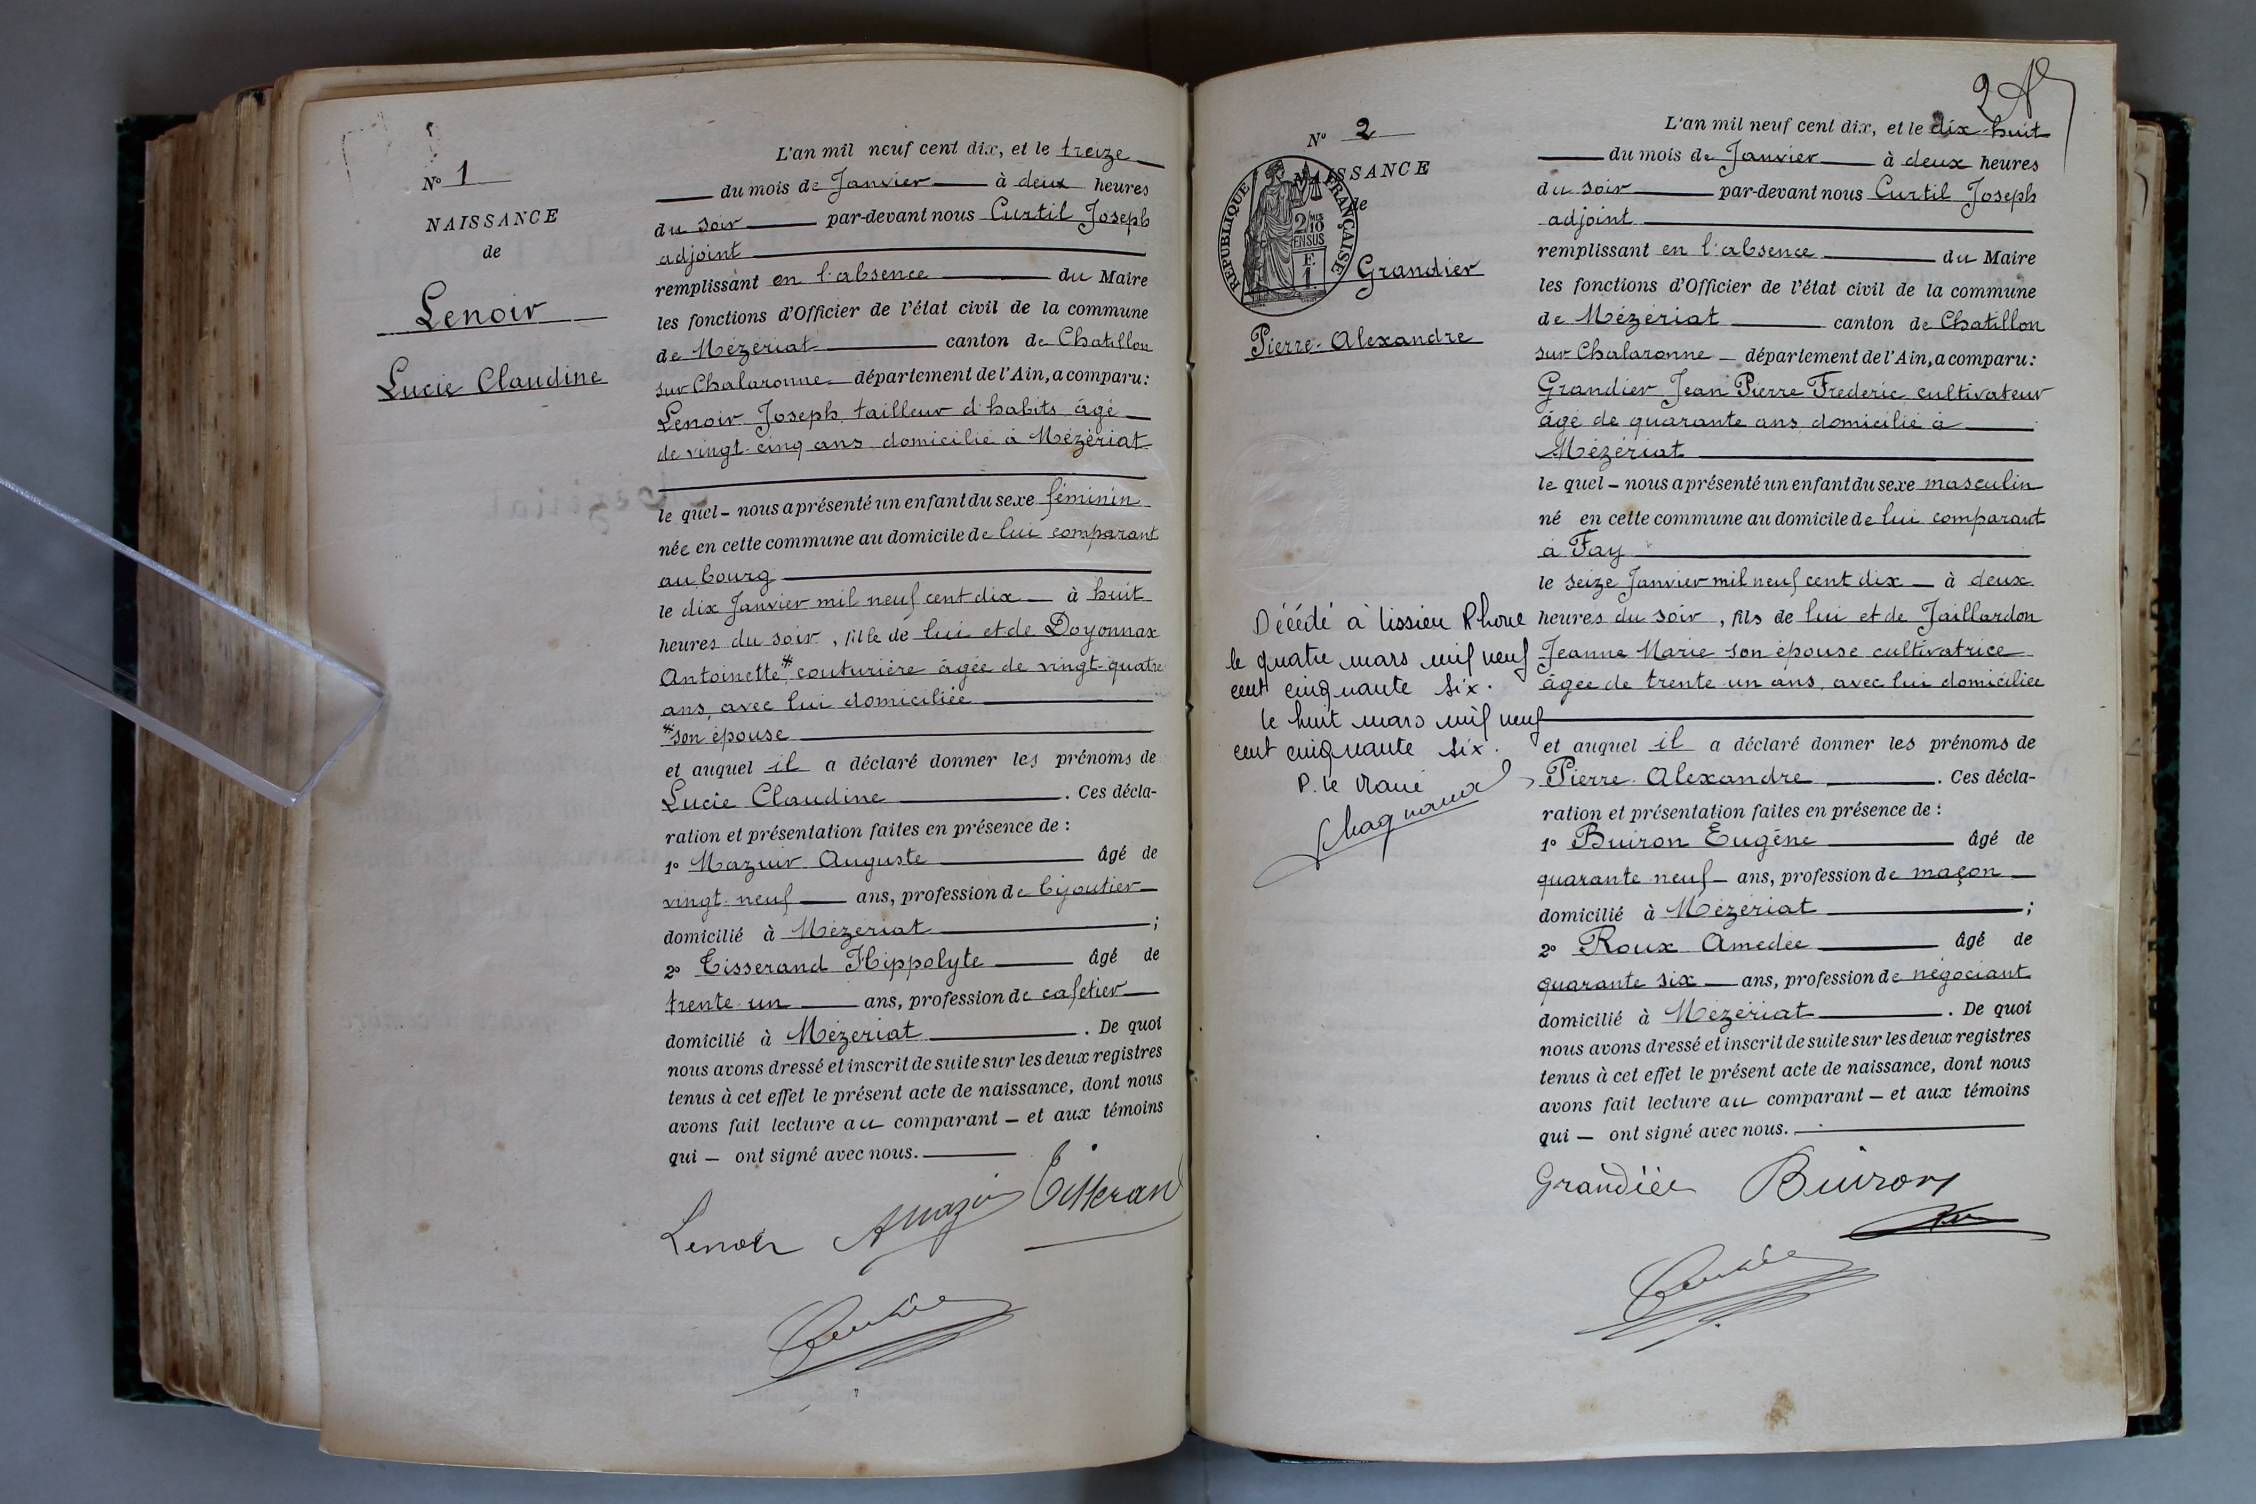 N° 1
NAISSANCE
de
Lenoir
Lucie Claudine
L'an mil neuf cent dix, et le treize
du mois de Janvier à deux heures
du soir par-devant nous Curtil Joseph
adjoint
remplissant en l'absence du Maire
les fonctions d'Officier de l'état civil de la commune
de Mézériat canton de Chatillon
sur Chalaronne département de l'Ain, a comparu:
Lenoir Joseph tailleur d'habits âgé
de vingt-cinq ans domicilié à Mézériat
le quel - nous a présenté un enfant du sexe féminin
née en cette commune au domicile de lui comparant
au bourg
le dix Janvier mil neuf cent dix à huit
heures du soir, fille de lui et de Doyonnax
Antoinette * couturière âgée de vingt-quatre
ans, avec lui domiciliée
* son épouse
et auquel il a déclaré donner les prénoms de
Lucie Claudine. Ces décla-
ration et présentation faites en présence de :
1° Mazuir Auguste âgé de
vingt-neuf ans, profession de bijoutier
domicilié à Mézériat ;
2° Tisserand Hippolyte âgé de
trente-un ans, profession de cafetier
domicilié à Mézériat. De quoi
nous avons dressé et inscrit de suite sur les deux registres
tenus à cet effet le présent acte de naissance, dont nous
avons fait lecture au comparant - et aux témoins
qui - ont signé avec nous.
Lenoir Tisseran
2
N° 2
NAISSANCE
de
REPUBLIQUE FRANÇAISE
2/10
EN SUS
F.
1
Grandier
Pierre-Alexandre
Décédé à Lissieu Rhone
le quatre mars mil neuf
cent cinquante six.
le huit mars mil neuf
cent cinquante six.
P. le Maire
L'an mil neuf cent dix, et le dix-huit
du mois de Janvier à deux heures
du soir par-devant nous Curtil Joseph
adjoint
remplissant en l'absence du Maire
les fonctions d'Officier de l'état civil de la commune
de Mézériat canton de Chatillon
sur Chalaronne département de l'Ain, a comparu:
Grandier Jean Pierre Frederic cultivateur
âgé de quarante ans domicilié à
Mézériat
le quel - nous a présenté un enfant du sexe masculin
né en cette commune au domicile de lui comparant
à Fay
le seize Janvier mil neuf cent dix à deux
heures du soir, fils de lui et de Jaillardon
Jeanne Marie son épouse cultivatrice
âgée de trente un ans, avec lui domiciliée
et auquel il a déclaré donner les prénoms de
Pierre-Alexandre. Ces décla-
ration et présentation faites en présence de :
1° Buiron Eugène âgé de
quarante neuf ans, profession de maçon
domicilié à Mézériat ;
2° Roux Amedée âgé de
quarante six ans, profession de négociant
domicilié à Mézériat. De quoi
nous avons dressé et inscrit de suite sur les deux registres
tenus à cet effet le présent acte de naissance, dont nous
avons fait lecture au comparant - et aux témoins
qui - ont signé avec nous.
Grandier Buiron